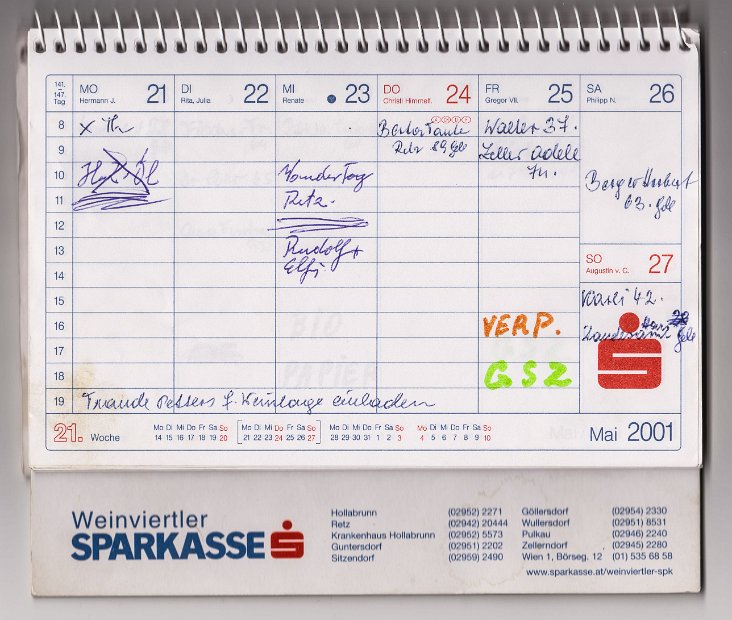 141. - 147. Tag
MO 21
Hermann J.
DI 22
Rita, Julia
MI 23
Renate
DO 24
Christi Himmelf.
FR 25
Gregor VII.
SA 26
Philipp N.
8
9
10
11
12
13
14
15
16
17
18
19
Retz.
Rudolf +
Elfi
Tante
Retz 89 Geb
Walter 37.
Zeller Adele
VERP.
GSZ
Berger Herbert
63. Geb
SO 27
Augustin v. C.
42.
einladen
21. Woche
Mo Di Mi Do Fr Sa So
14 15 16 17 18 19 20
Mo Di Mi Do Fr Sa So
21 22 23 24 25 26 27
Mo Di Mi Do Fr Sa So
28 29 30 31 1 2 3
Mo Di Mi Do Fr Sa So
4 5 6 7 8 9 10
Mai 2001
Weinviertler
SPARKASSE
Hollabrunn (02952) 2271
Retz (02942) 20444
Krankenhaus Hollabrunn (02952) 5573
Guntersdorf (02951) 2202
Sitzendorf (02959) 2490
Göllersdorf (02954) 2330
Wullersdorf (02951) 8531
Pulkau (02946) 2240
Zellerndorf (02945) 2280
Wien 1, Börseg. 12 (01) 535 68 58
www.sparkasse.at/weinviertler-spk